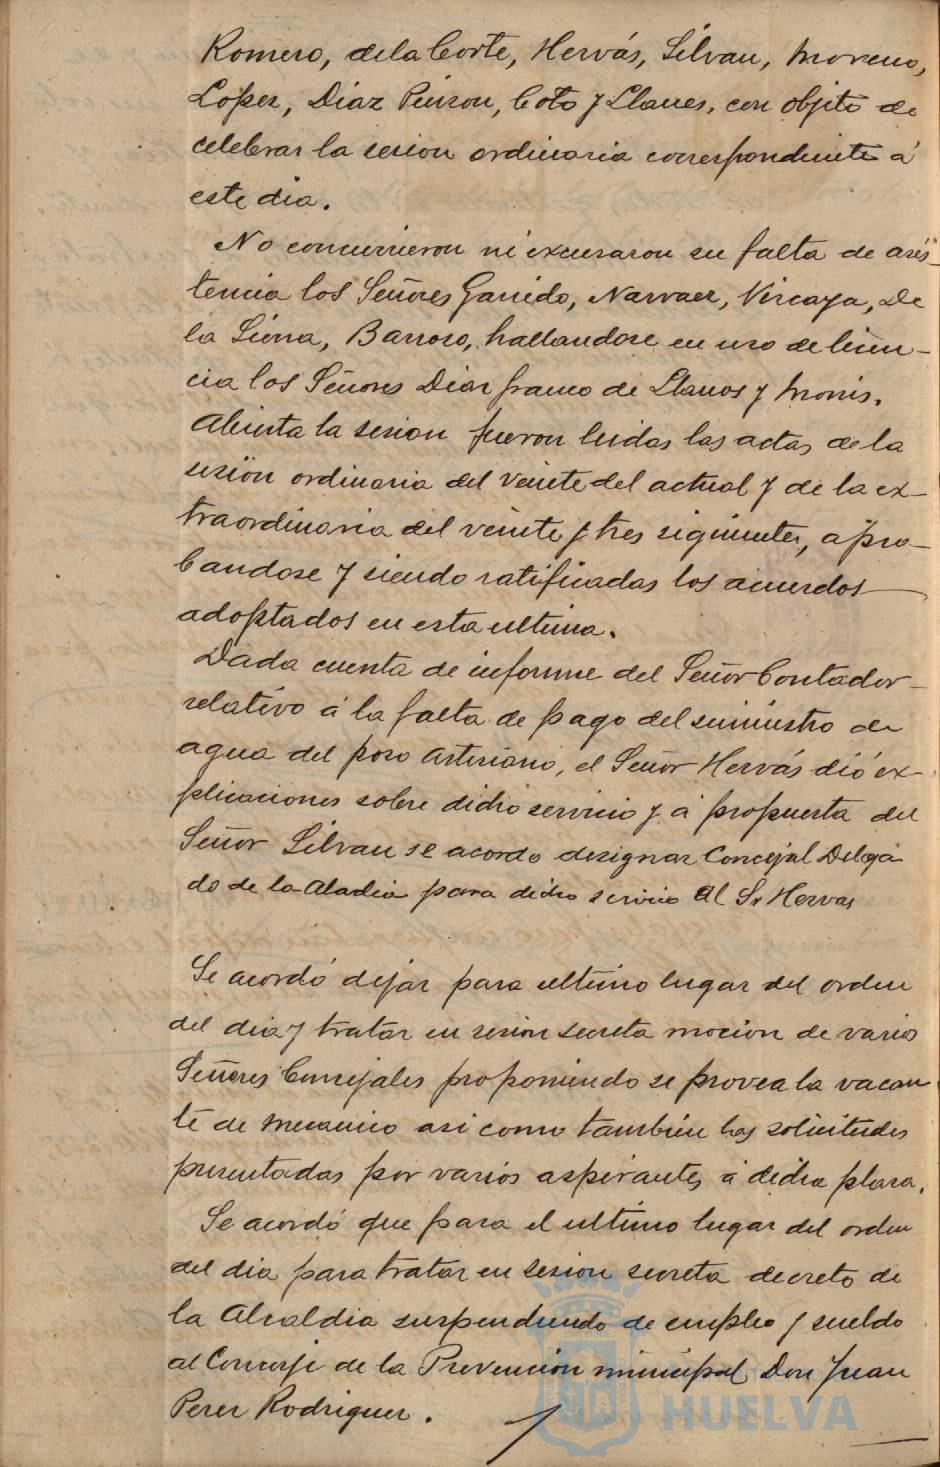 Romero, de la Corte, Hervás, Silvan, Moreno,
Lopez, Diaz Pinzon, Coto y Llanes, con objeto de
celebrar la sesion ordinaria correspondiente á
este dia.
No concurrieron ni excusaron su falta de asis-
tencia los Señores Garrido, Narvaez, Vizcaya, De
la Sierra, Barroso, hallandose en uso de licen-
cia los Señores Diaz franco de Llanos y Monis.
Abierta la sesion fueron leidas las actas de la
sesión ordinaria del veinte del actual y de la ex-
traordinaria del veinte y tres siguiente, apro-
bandose y siendo ratificadas los acuerdos
adoptados en esta ultima.
Dada cuenta de informe del Señor Contador
relativo á la falta de pago del suministro de
agua del pozo artesiano, el Señor Hervás dió ex-
plicaciones sobre dicho servicio y á propuesta del
Señor Silvan se acordo designar Concejal Delega
do de la Alcadia para dicho servicio al Sr Hervas
Se acordó dejar para ultimo lugar del orden
del dia y tratar en sesion secreta mocion de varios
Señores Concejales proponiendo se provea la vacan
te de mecanico asi como tambien las solicitudes
presentadas por varios aspirantes á dicha plaza.
Se acordó que para el ultimo lugar del orden
del dia para tratar en sesion secreta decreto de
la Alcaldia suspendiendo de empleo y sueldo
al Conserje de la Prevencion municipal Don Juan
Perez Rodriguez.
HUELVA